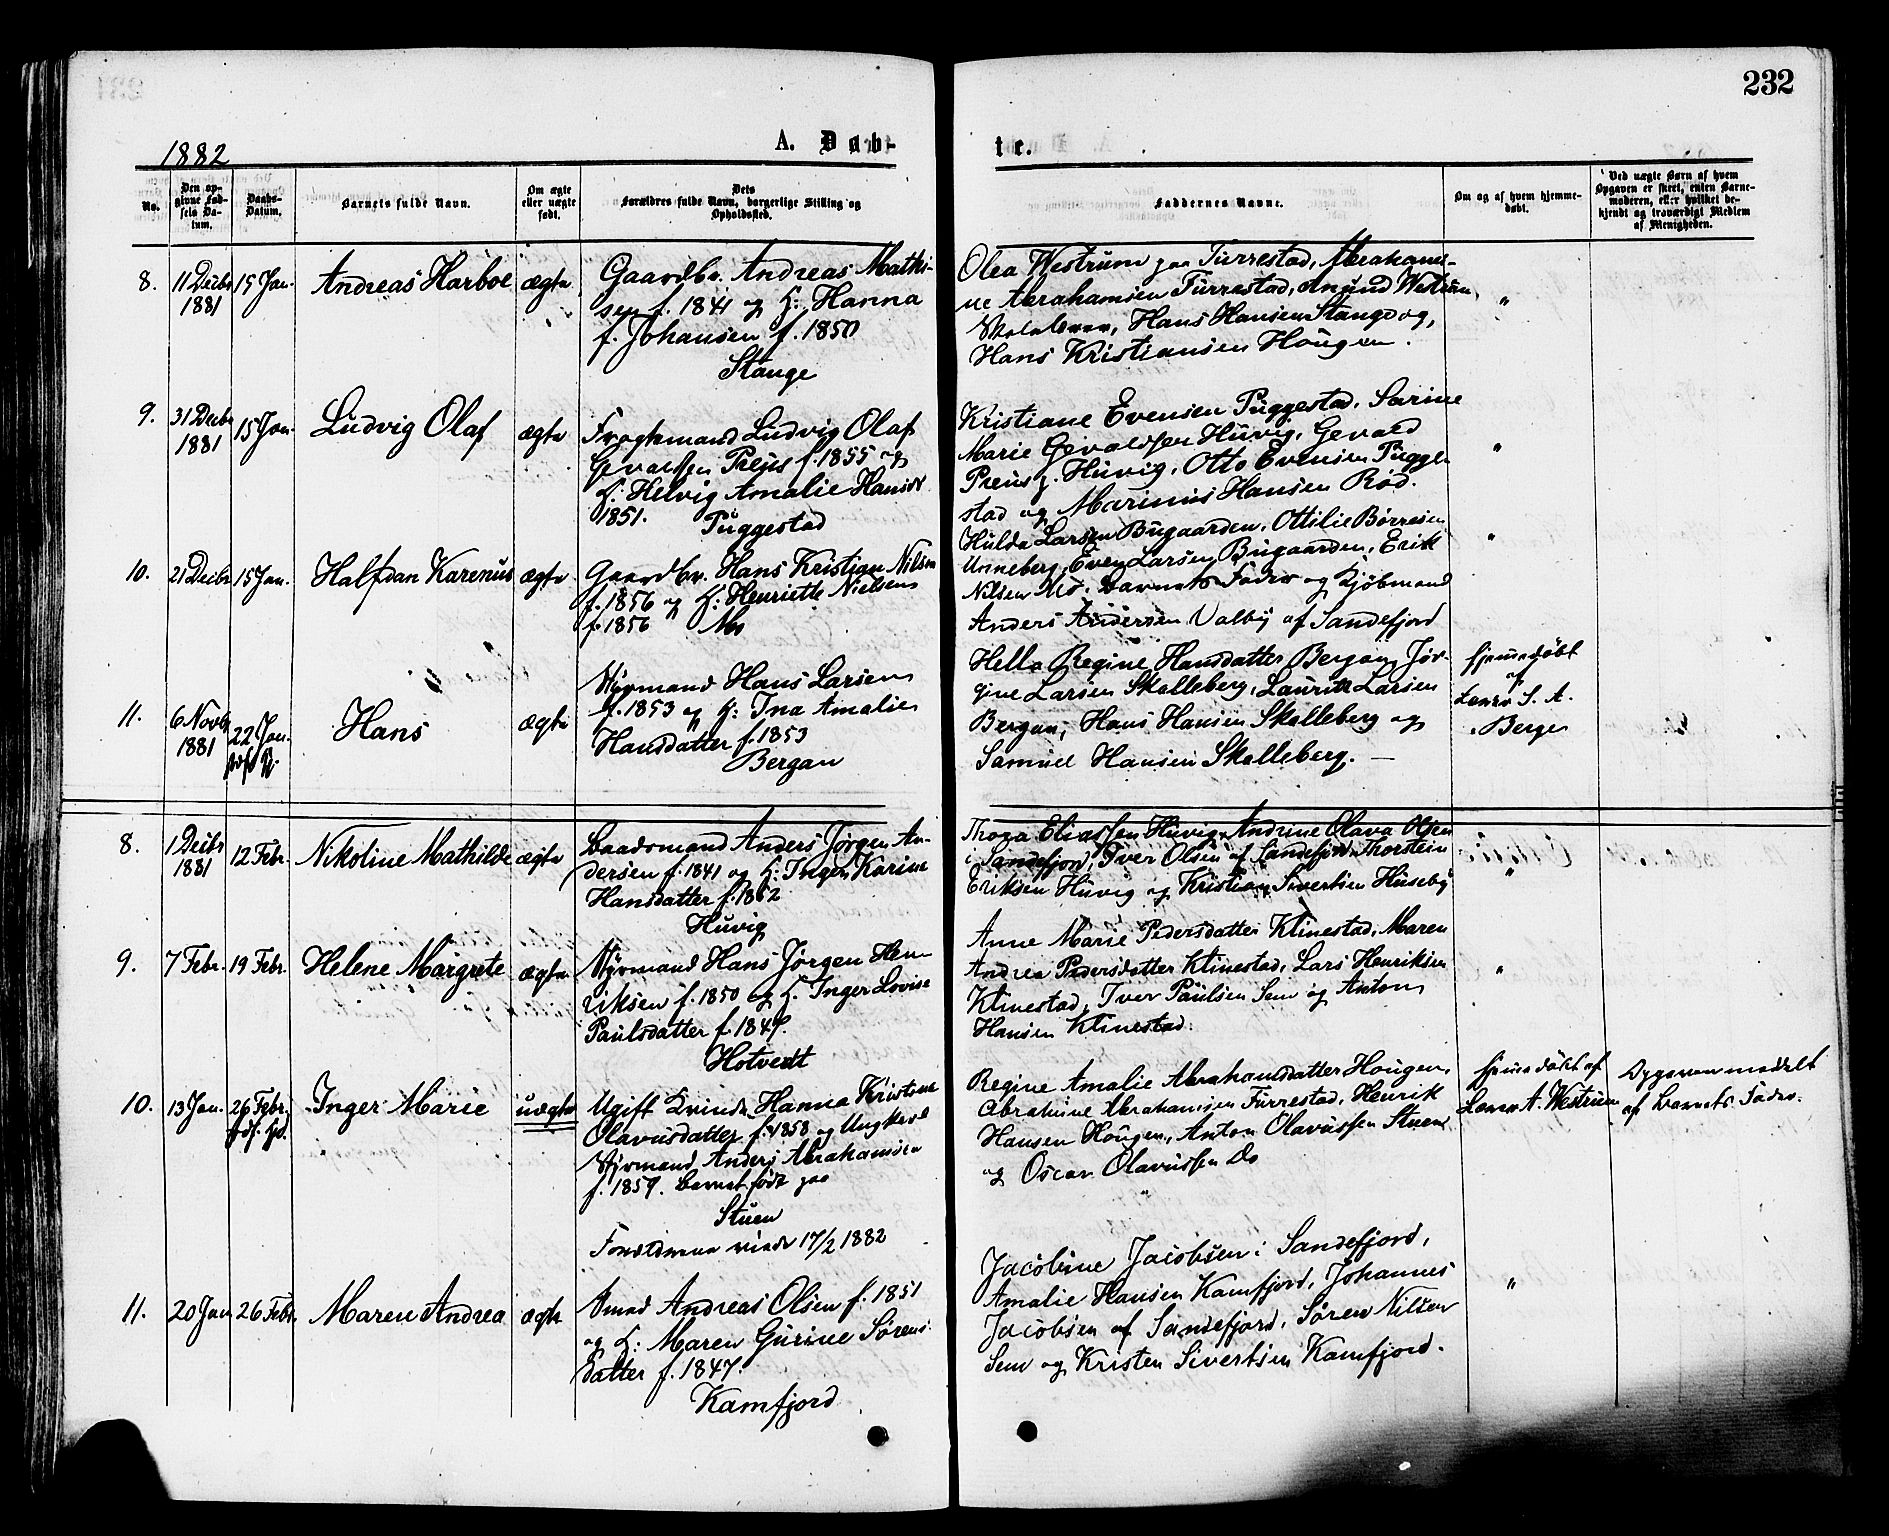 232
1882
A. Døb-
te.
No.
Den op-
givne Fød-
sels Da-
tum.
Daabs-
Datum.
Barnets fulde Navn.
Om ægte
eller uægte
født.
Dets
Forældres fulde Navn, borgerlige Stilling og
Opholdssted.
Faddernes Navne.
Om og af hvem hjemme-
døbt.
Ved uægte Børn af hvem
Opgaven er skeet, enten Barne-
moderen, eller hvilket be-
kjendt og troværdigt Medlem
af Menigheden.
8.
11 Decbr
1881
15 Jan.
Andreas Harboe
ægte
Gaardbr. Andreas Mathi-
sen f. 1841 og H: Hanna
f. Johansen f. 1850
Stange
Olea Westrum paa Furrestad, Abrahami-
ne Abrahamsen Furrestad, Anund Westrum,
Hans Hansen Stange og,
Hans Kristiansen Hougen.
"
9.
31 Decbr
1881
15 Jan.
Ludvig Olaf
ægte
Fragtemand Ludvig Olaf
Gevaldsen Preus f. 1855 og
H: Helvig Amalie Hansdr
1851.
Puggestad
Kristiane Evensen Puggestad, Sarine
Marie Gevaldsen Huvig, Gevald
Preus f. Huvig, Otto Evensen Pugge-
stad og Marinius Hansen Rød.
"
10.
21 Decbr
15 Jan.
Halfdan Karenus
ægte
Gaardbr. Hans Kristian Nilsen
f. 1856 og H: Henriette Nielsen
f. 1856 Mo
Hulda Larsen Bugaarden, Ottilie Børresen
Unneberg, Even Larsen Bugaarden, Erik
Nilsen Mo, Barnets Fader og Kjøbmand
Anders Andersen Valby af Sandefjord
"
11.
6 Novbr
1881
22 Jan.
Hans
ægte
Styrmand Hans Larsen
f. 1853 og H: Ina Amalie
Hansdatter f. 1853
Bergan
Hella Regine Hansdatter Bergan, Jør-
gine Larsen Skalleberg, Lauritz Larsen
Bergan, Hans Hansen Skalleberg og
Samuel Hansen Skalleberg. —
hjemmedøbt
af
Lærer S. A.
Berge
8.
1 Decbr
1881
12 Febr.
Nikoline Mathilde
ægte
Baadsmand Anders Jørgen An-
dersen f. 1841 og H: Inger Karine
Hansdatter f. 1862
Huvig
Thora Eliassen Huvig, Andrine Olava Olsen
i Sandefjord, Iver Olsen af Sandefjord, Thorstein
Eriksen Huvig og Kristian Sivertsen Huseby
"
9.
7 Febr.
19 Febr.
Helene Margrete
ægte
Styrmand Hans Jørgen Hen-
riksen f. 1850 og H. Inger Lovise
Paulsdatter f. 1847.
Hotvedt
Anne Marie Pedersdatter Klinestad, Maren
Andrea Pedersdatter Klinestad, Lars Henriksen
Klinestad, Iver Paulsen Sem og Anton
Hansen Klinestad.
"
10.
13 Jan.
26 Febr.
Inger Marie
uægte
Ugift Kvinde Hanna Kristine
Olavusdatter f. 1858 og Ungkarl
Styrmand Anders Abrahamsen
f. 1859. Barnet født paa
Stuen
Forældrene viede 17/2 1882
Regine Amalie Abrahamsdatter Hougen,
Abrahine Abrahamsen Furrestad, Henrik
Hansen Hougen, Anton Olavussen Stuen
og Oscar Olavussen Do
hjemmedøbt af
Lærer A. Westrum
Opgaven meddelt
af Barnets Fader.
11.
20 Jan
26 Febr.
Maren Andrea
ægte
Smed Andreas Olsen f. 1851
og H: Maren Gurine Sørens-
datter f. 1847.
Kamfjord
Jacobine Jacobsen i Sandefjord,
Amalie Hansen Kamfjord, Johannes
Jacobsen af Sandefjord, Søren Nilsen
Sem og Kristen Sivertsen Kamfjord.
"